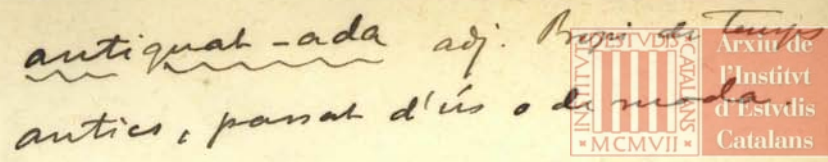 antiquat -ada adj. Propi de temps
antics, passat d'ús o de moda.
INSTITVT D'ESTVDIS CATALANS
MCMVII
Arxiu de
l'Institvt
d'Estvdis
Catalans